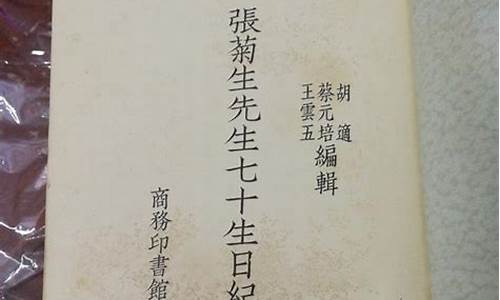 胡適
蔡元培
王雲五
編輯
張菊生先生七十生日紀
商務印書館